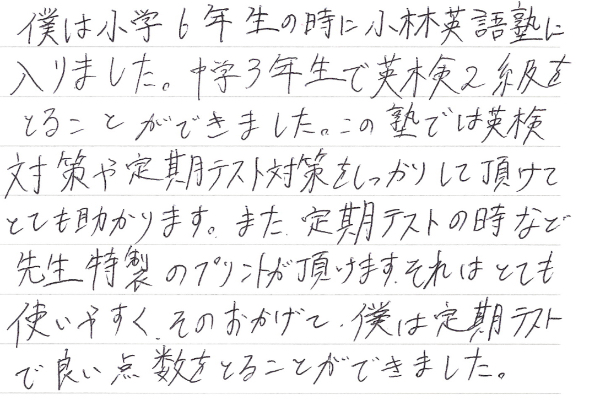 僕は小学6年生の時に小林英語塾に
入りました。中学3年生で英検2級を
とることができました。この塾では英検
対策や定期テスト対策をしっかりして頂けて
とても助かります。また、定期テストの時など
先生特製のプリントが頂けます。それはとても
使いやすく、そのおかげで、僕は定期テスト
で良い点数をとることができました。